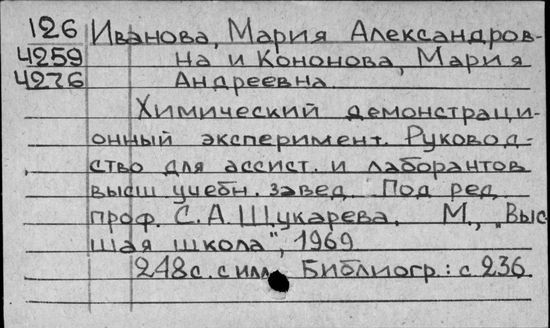 126 Иванова, Мария Александров-
4259 на и Кононова, Мария
4276 Андреевна.
Химический демонстраци-
онный эксперимент. Руковод-
ство для ассист. и лаборантов
высш учебн. завед. Под ред.
проф. С. А. Щукарева. М., „Выс
шая школа", 1969
248 с. с илл. Библиогр.: с 236.